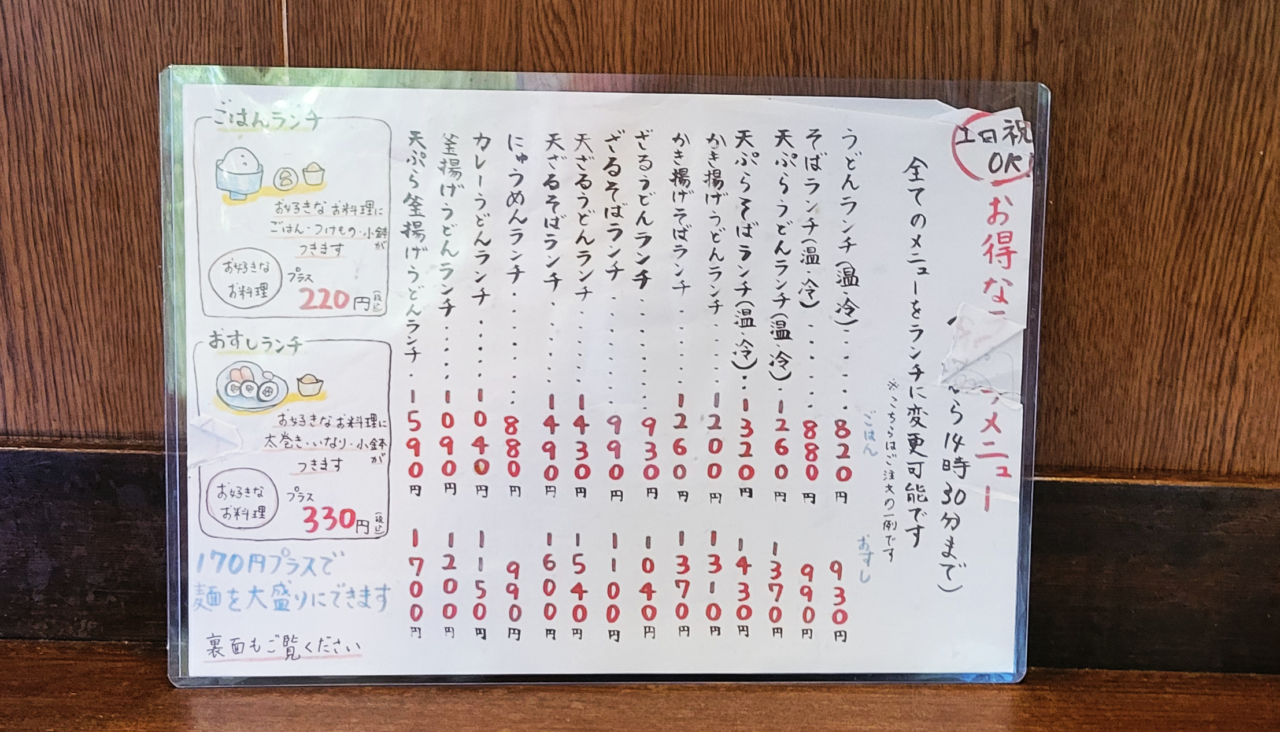 土日祝
OK!
お得な
メニュー
ら14時30分まで)
全てのメニューをランチに変更可能です
※こちらはご注文の一例です
ごはん
おすし
うどんランチ(温・冷)・・・・820円 930円
そばランチ(温・冷)・・・・880円 990円
天ぷらうどんランチ(温・冷)・・1260円 1370円
天ぷらそばランチ(温・冷)・・1320円 1430円
かき揚げうどんランチ・・・・1200円 1310円
かき揚げそばランチ・・・・1260円 1370円
ざるうどんランチ・・・・・930円 1040円
ざるそばランチ・・・・・990円 1100円
天ざるうどんランチ・・・・1430円 1540円
天ざるそばランチ・・・・1490円 1600円
にゅうめんランチ・・・・・880円 990円
カレーうどんランチ・・・・1040円 1150円
釜揚げうどんランチ・・・・1090円 1200円
天ぷら釜揚げうどんランチ・・1590円 1700円
ごはんランチ
お好きなお料理に
ごはん・つけもの・小鉢が
つきます
お好きな
お料理
プラス
220円(税込)
おすしランチ
お好きなお料理に
太巻き・いなり・小鉢が
つきます
お好きな
お料理
プラス
330円(税込)
170円プラスで
麺を大盛りにできます
裏面もご覧ください